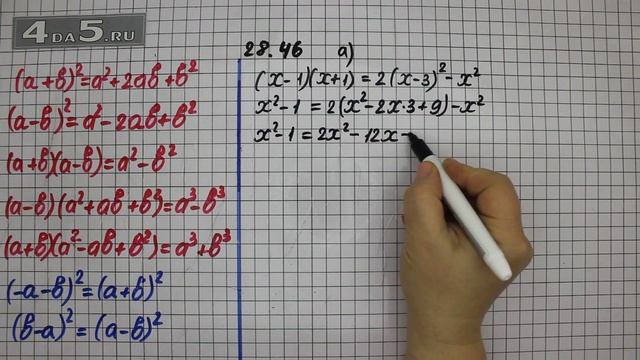 4DA5.RU
(a+b)²=a²+2ab+b²
(a-b)²=a²-2ab+b²
(a+b)(a-b)=a²-b²
(a-b)(a²+ab+b²)=a³-b³
(a+b)(a²-ab+b²)=a³+b³
(-a-b)²=(a+b)²
(b-a)²=(a-b)²
28.46 а)
(x-1)(x+1)=2(x-3)²-x²
x²-1=2(x²-2x·3+9)-x²
x²-1=2x²-12x-